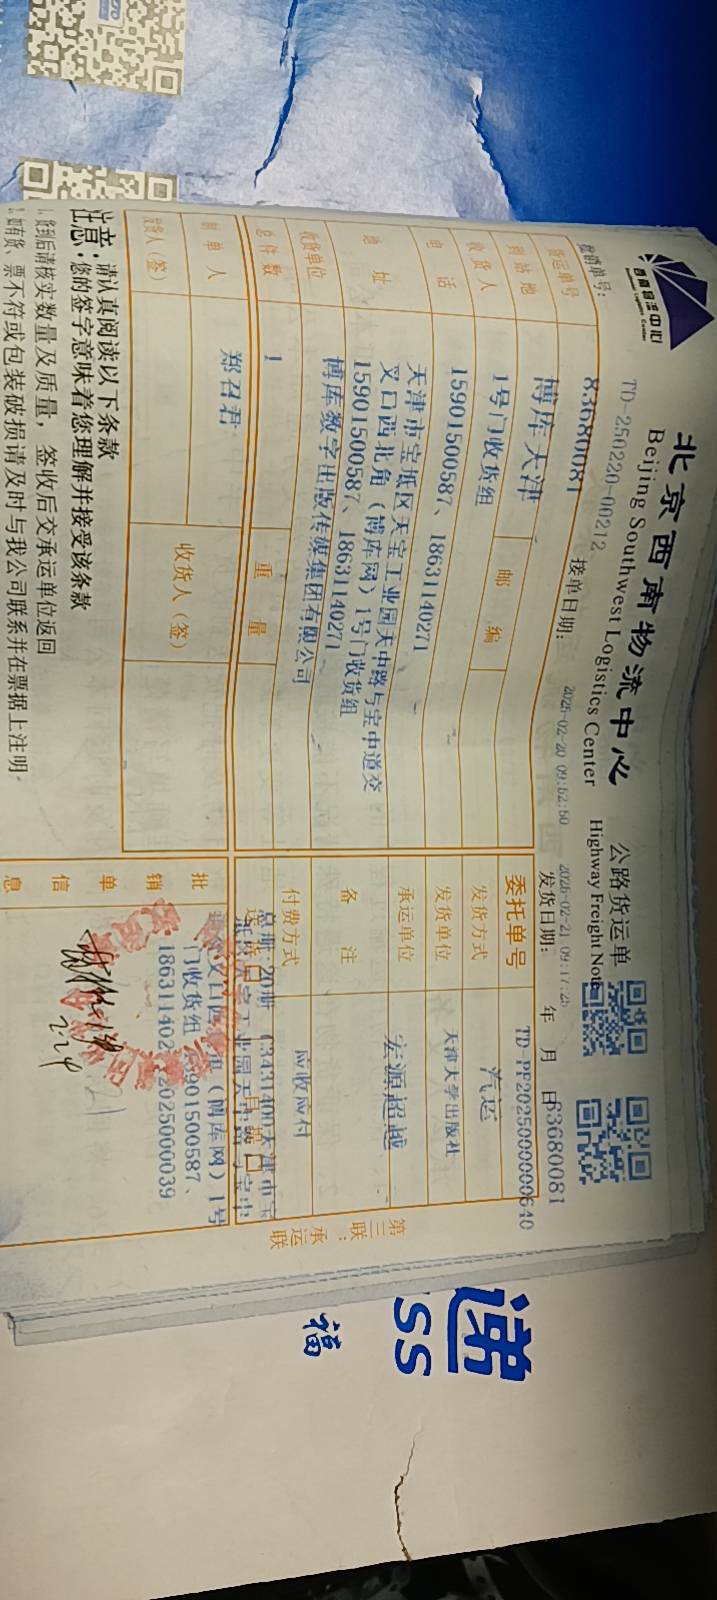 西南物流中心
北京西南物流中心
Beijing Southwest Logistics Center
公路货运单
Highway Freight Note
TD-250220-00212
接单日期：
2025-02-20 09:52:50
2025-02-21 09:17:25
发货日期：
年 月 日
83680081
货运单号
83680081
委托单号
TD-PF20250000000640
到站地
博库天津
邮 编
发货方式
汽运
收货人
1号门收货组
发货单位
天津大学出版社
电 话
15901500587、18631140271
承运单位
宏源超越
地 址
天津市宝坻区天宝工业园天中路与宝中道交
叉口西北角（博库网）1号门收货组
15901500587、18631140271
备 注
收货单位
博库数字出版传媒集团有限公司
付费方式
应收应付
总件数
1
重 量
制单人
郑召君
收货人（签）
注意：
请认真阅读以下条款
您的签字意味着您理解并接受该条款
货到后请核实数量及质量，签收后交承运单位返回
如有货、票不符或包装破损请及时与我公司联系并在票据上注明
批 销 单 信 息
门收货组
（博库网）1号
2025000039
第三联：承运联
递
SS
福